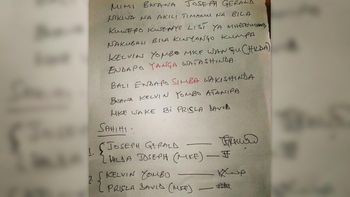 MIMI BWANA JOSEPH GERALD
NIKIWA NA AKILI TIMAMU NA BILA
KUWEPO KWENYE LIST YA
NAKUBALI BILA KINYONGO KUMPA
KELVIN YOMBO MKE WANGU (HILDA)
ENDAPO YANGA WATASHINDA
BALI ENDAPO SIMBA WAKISHINDA
BWANA KELVIN YOMBO ATANIPA
MKE WAKE BI PRISLA DAVID
SAHIHI.
1 { JOSEPH GERALD —
HILDA JOSEPH (MKE) —
2 { KELVIN YOMBO —
PRISLA DAVID (MKE) —